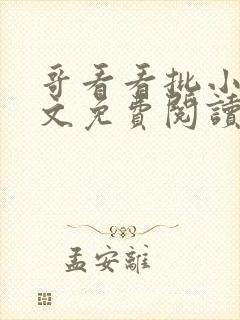 哥看看批小
文免費閱讀
孟安離